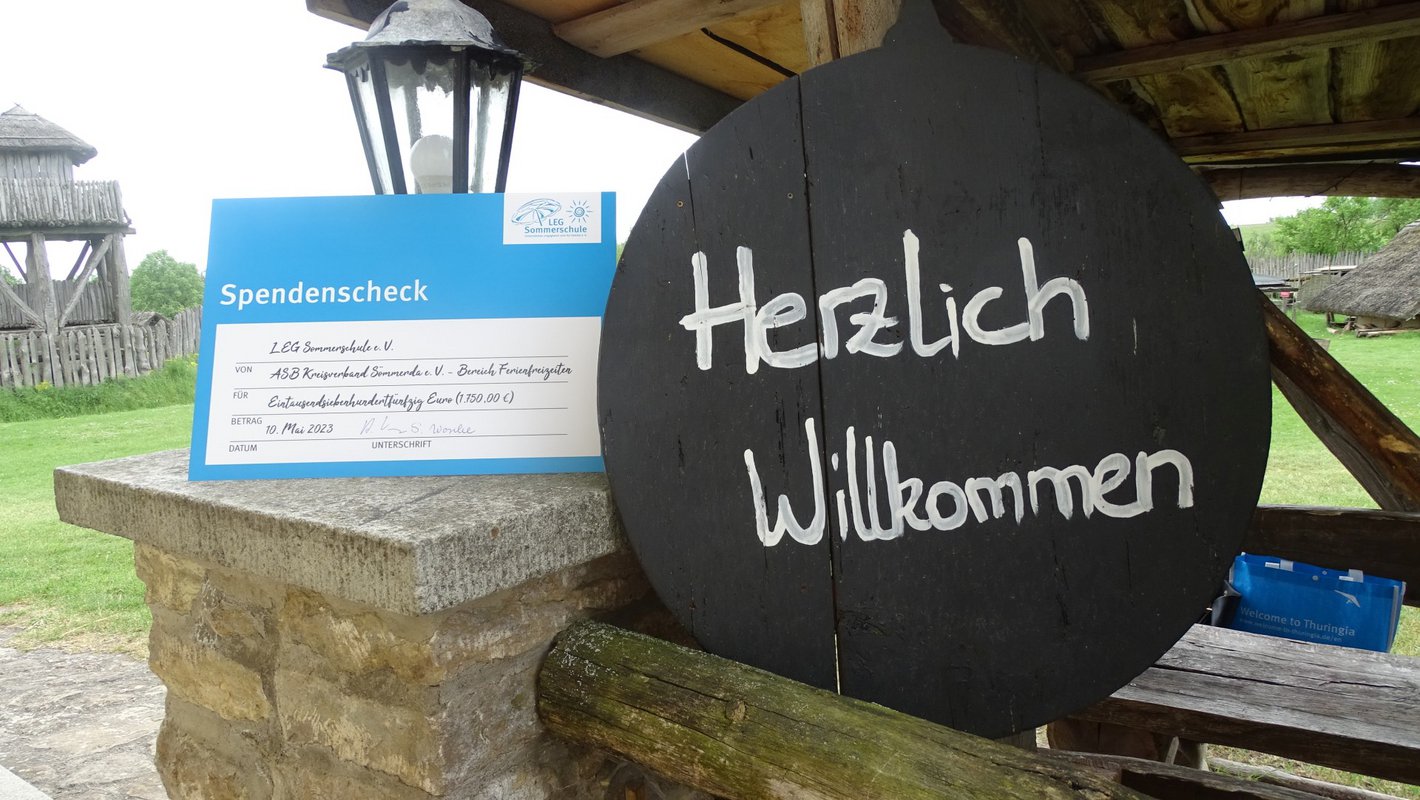 LEG
Sommerschule
Spendenscheck
LEG Sommerschule e.V.
VON
ASB Kreisverband Sömmerda e.V. - Bereich Ferienfreizeiten
FÜR
Eintausendsiebenhundertfünfzig Euro (1.750,00 €)
BETRAG
10. Mai 2023
DATUM
UNTERSCHRIFT
Herzlich
Willkommen
Welcome to Thuringia
www.welcome-to-thuringia.de/en